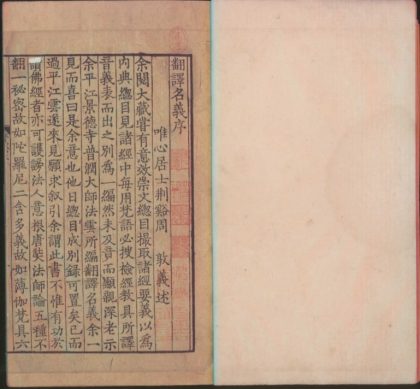 翻譯名義序
唯心居士荊谿周 敦義述
余閱大藏嘗有意效崇文總目撮取諸經要義以為
內典總目見諸經中每用梵語必搜檢經教具所譯
音義表而出之別為一編然未及竟而顯親深老示
余平江景德寺普潤大師法雲所編翻譯名義余一
見而喜曰是余意也他日總目成別錄可置矣已而
過平江雲遂來見願求叙引余謂此書不惟有功於
讀佛經者亦可護謗法人意根唐奘法師論五種不
翻一祕密故如陀羅尼二含多義故如薄伽梵具六